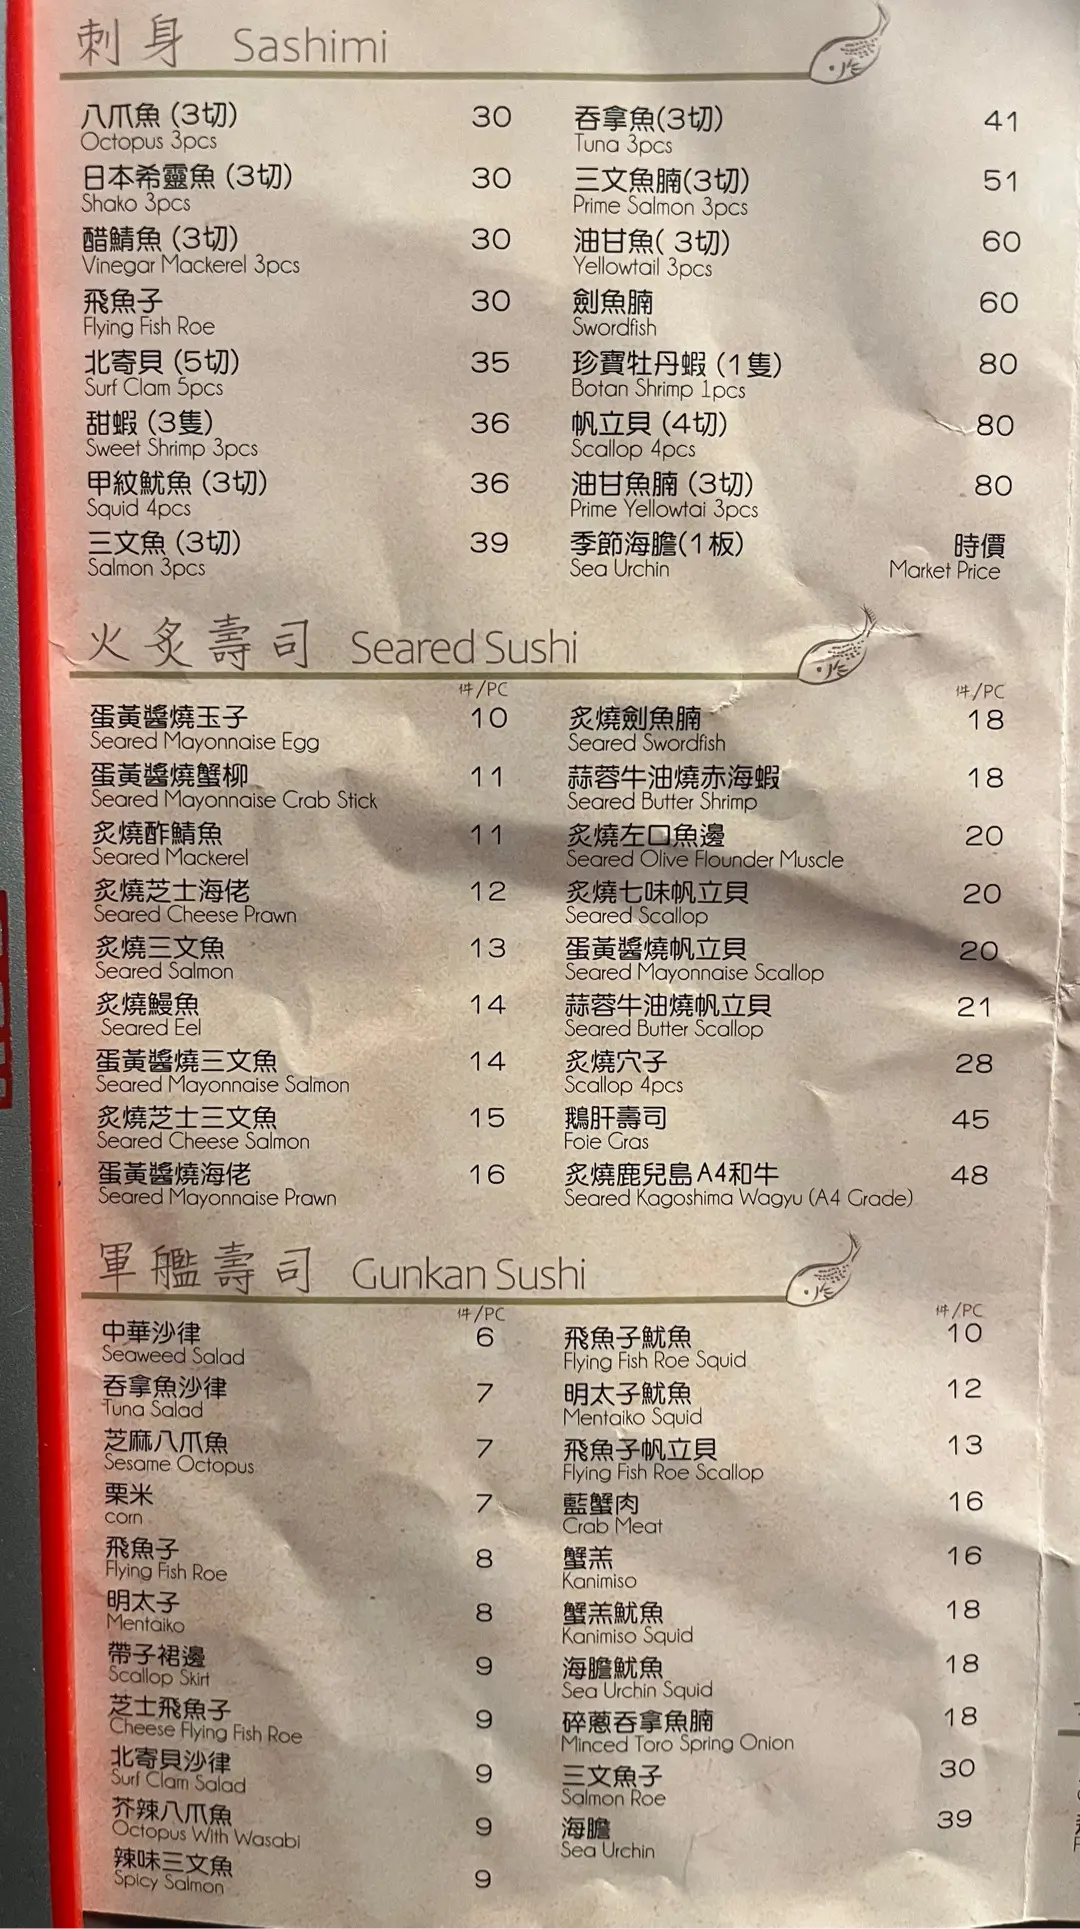 刺身 Sashimi
八爪魚 (3切) 30
Octopus 3pcs
日本希靈魚 (3切) 30
Shako 3pcs
醋鯖魚 (3切) 30
Vinegar Mackerel 3pcs
飛魚子 30
Flying Fish Roe
北寄貝 (5切) 35
Surf Clam 5pcs
甜蝦 (3隻) 36
Sweet Shrimp 3pcs
甲紋魷魚 (3切) 36
Squid 4pcs
三文魚 (3切) 39
Salmon 3pcs
吞拿魚(3切) 41
Tuna 3pcs
三文魚腩(3切) 51
Prime Salmon 3pcs
油甘魚( 3切) 60
Yellowtail 3pcs
劍魚腩 60
Swordfish
珍寶牡丹蝦 (1隻) 80
Botan Shrimp 1pcs
帆立貝 (4切) 80
Scallop 4pcs
油甘魚腩 (3切) 80
Prime Yellowtai 3pcs
季節海膽(1板) 時價
Sea Urchin Market Price
火炙壽司 Seared Sushi
件/PC
蛋黃醬燒玉子 10
Seared Mayonnaise Egg
蛋黃醬燒蟹柳 11
Seared Mayonnaise Crab Stick
炙燒酢鯖魚 11
Seared Mackerel
炙燒芝士海佬 12
Seared Cheese Prawn
炙燒三文魚 13
Seared Salmon
炙燒鰻魚 14
Seared Eel
蛋黃醬燒三文魚 14
Seared Mayonnaise Salmon
炙燒芝士三文魚 15
Seared Cheese Salmon
蛋黃醬燒海佬 16
Seared Mayonnaise Prawn
件/PC
炙燒劍魚腩 18
Seared Swordfish
蒜蓉牛油燒赤海蝦 18
Seared Butter Shrimp
炙燒左口魚邊 20
Seared Olive Flounder Muscle
炙燒七味帆立貝 20
Seared Scallop
蛋黃醬燒帆立貝 20
Seared Mayonnaise Scallop
蒜蓉牛油燒帆立貝 21
Seared Butter Scallop
炙燒穴子 28
Scallop 4pcs
鵝肝壽司 45
Foie Gras
炙燒鹿兒島A4和牛 48
Seared Kagoshima Wagyu (A4 Grade)
軍艦壽司 Gunkan Sushi
件/PC
中華沙律 6
Seaweed Salad
吞拿魚沙律 7
Tuna Salad
芝麻八爪魚 7
Sesame Octopus
粟米 7
corn
飛魚子 8
Flying Fish Roe
明太子 8
Mentaiko
帶子裙邊 9
Scallop Skirt
芝士飛魚子 9
Cheese Flying Fish Roe
北寄貝沙律 9
Surf Clam Salad
芥辣八爪魚 9
Octopus With Wasabi
辣味三文魚 9
Spicy Salmon
件/PC
飛魚子魷魚 10
Flying Fish Roe Squid
明太子魷魚 12
Mentaiko Squid
飛魚子帆立貝 13
Flying Fish Roe Scallop
藍蟹肉 16
Crab Meat
蟹羔 16
Kanimiso
蟹羔魷魚 18
Kanimiso Squid
海膽魷魚 18
Sea Urchin Squid
碎蔥吞拿魚腩 18
Minced Toro Spring Onion
三文魚子 30
Salmon Roe
海膽 39
Sea Urchin